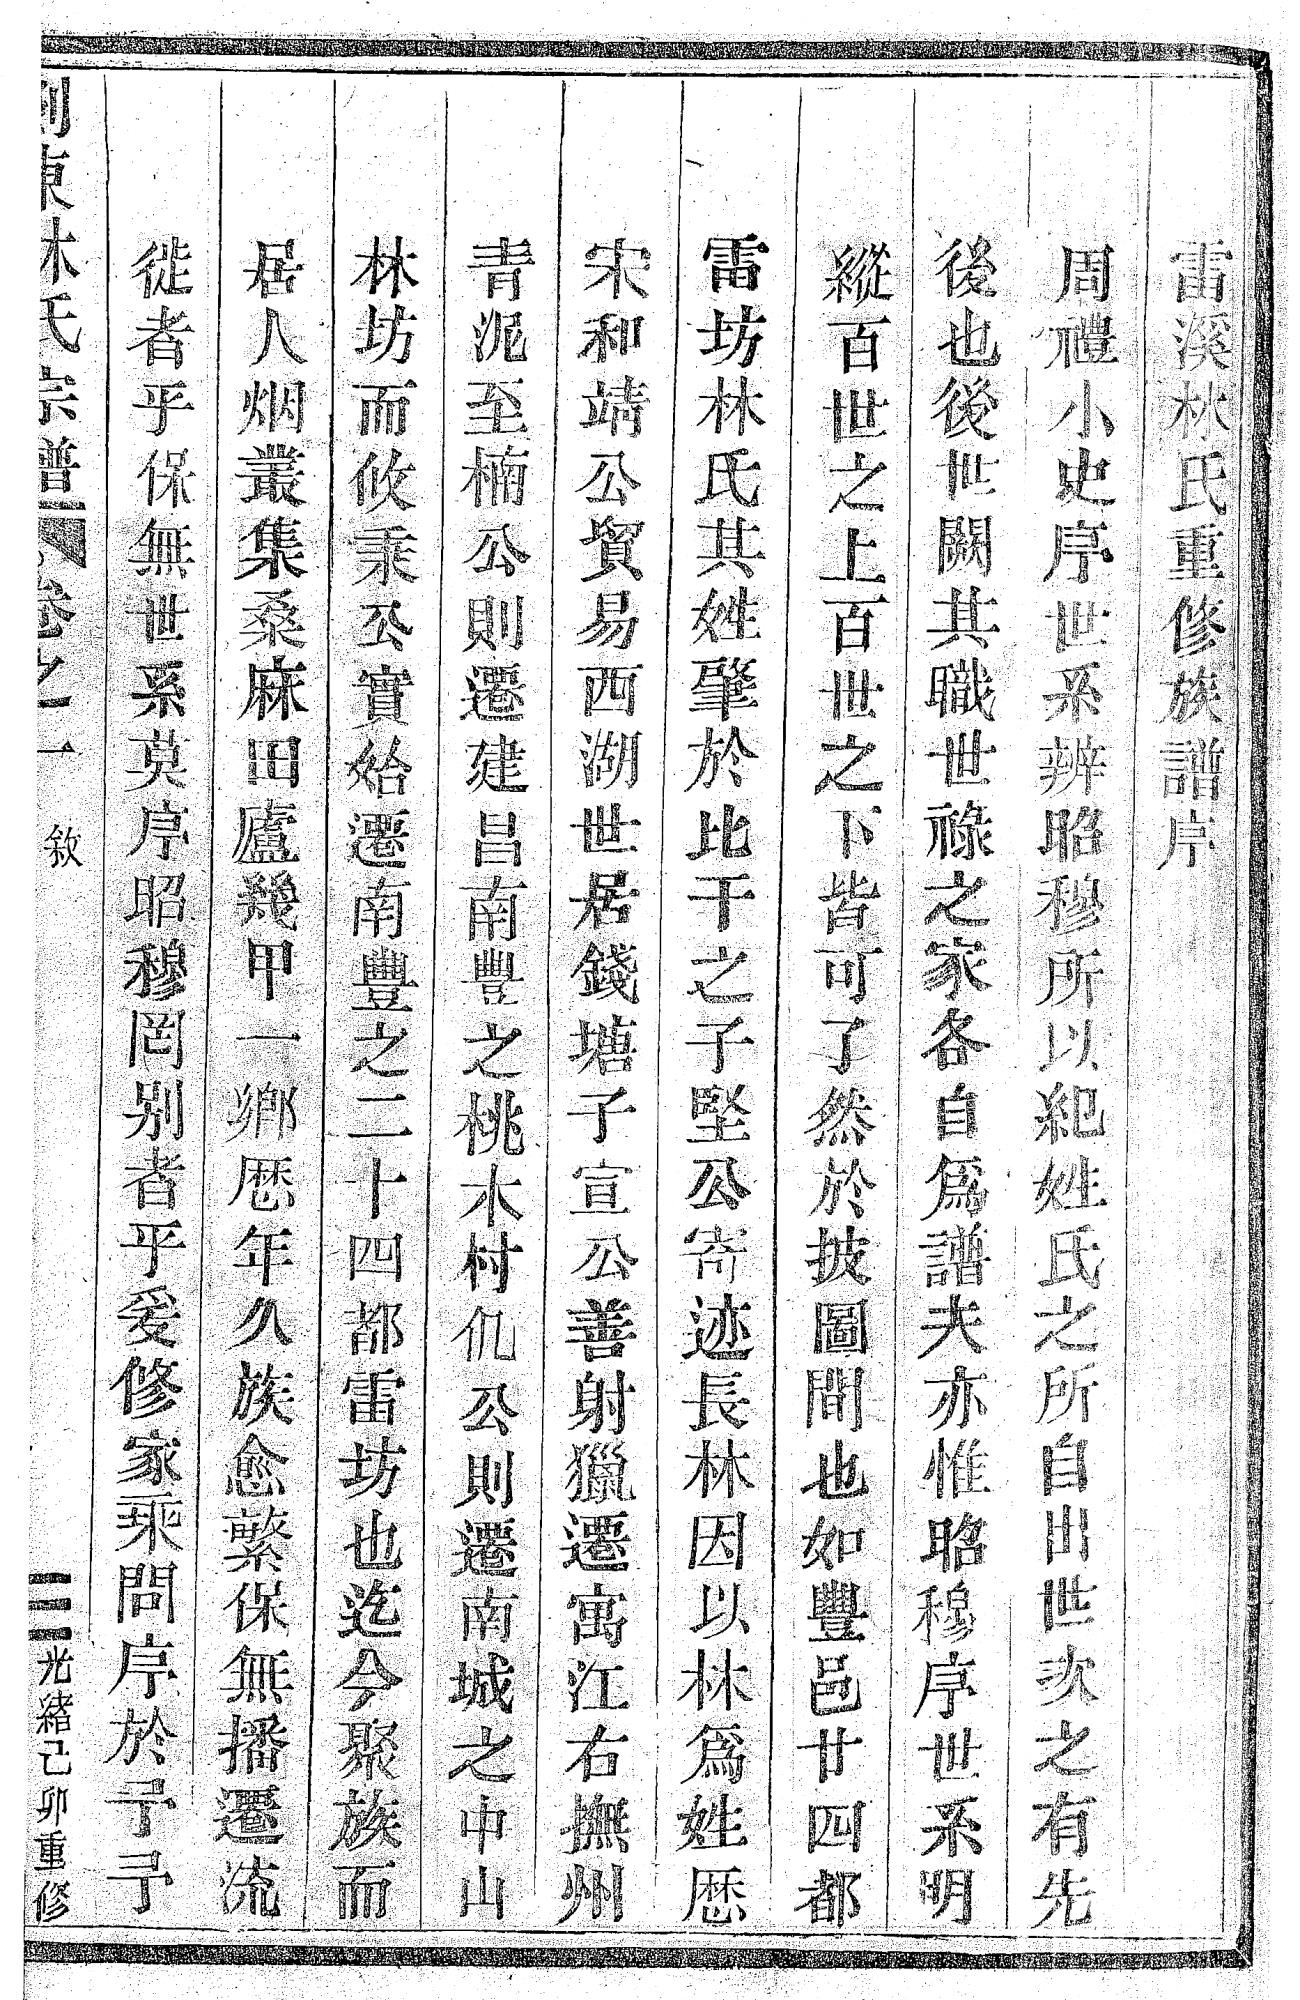 雷溪林氏重修族譜序
周禮小史序世系辨昭穆所以紀姓氏之所自出世次之有先
後也後世闕其職世祿之家各自爲譜夫亦惟昭穆序世系明
縱百世之上百世之下皆可了然於披圖間也如豐邑廿四都
雷坊林氏其姓肇於比干之子堅公寄迹長林因以林爲姓歷
宋和靖公貿易西湖世居錢塘子宣公善射獵遷寓江右撫州
青泥至楠公則遷建昌南豐之桃木村仉公則遷南城之中山
林坊而攸秉公實始遷南豐之二十四都雷坊也迄今聚族而
居人烟叢集桑麻田廬幾甲一鄉歷年久族愈繁保無播遷流
徙者乎保無世系莫序昭穆罔别者乎爰修家乘問序於予予
東林氏宗譜 卷之一 敘 光緒己卯重修